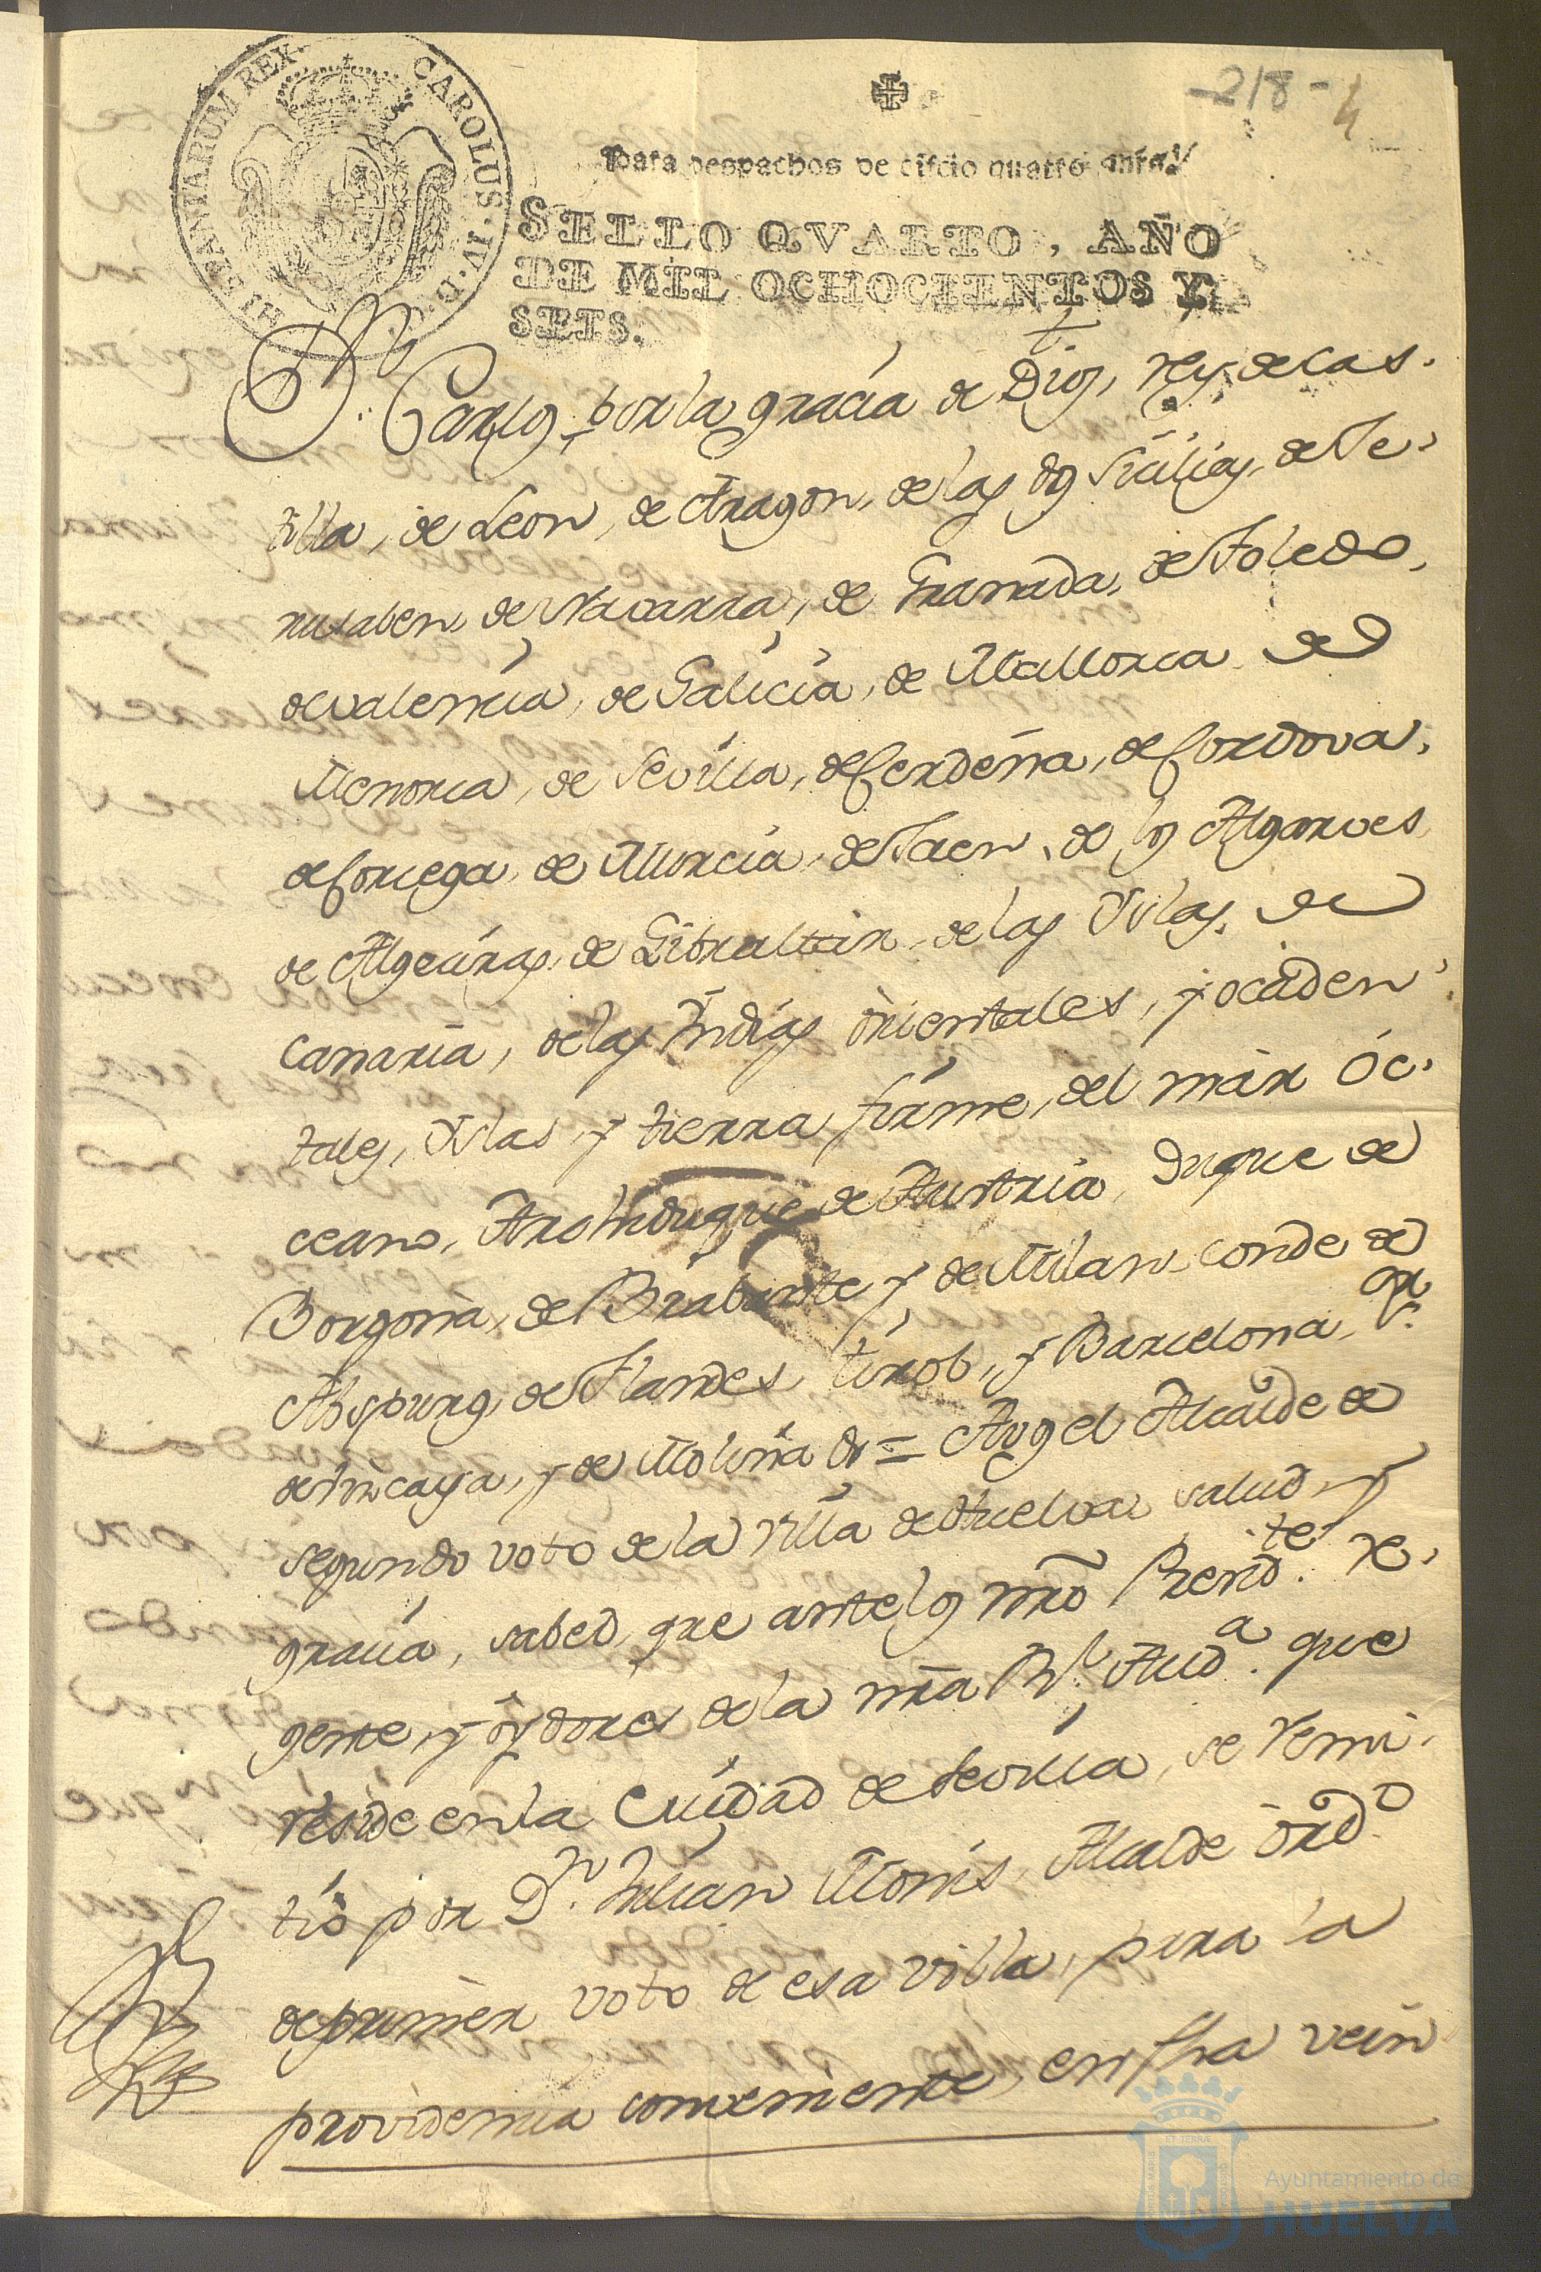 HISPANIARUM REX. CAROLUS. IV. D. G.
-218- 4
Para despachos de oficio quatro mrs.
SELLO QVARTO, AÑO
DE MIL OCHOCIENTOS Y
SEIS.
Dn. Carlos por la gracia de Dios, rey de Cas-
tilla, de Leon, de Aragon, de las dos Sicilias, de Je-
rusalen, de Navarra, de Granada, de Toledo,
de valencia, de Galicia, de Mallorca de
Menorca, de Sevilla, de Cerdeña, de Cordova,
de Corcega, de Murcia, de Jaen, de los Algarves
de Algeciras, de Gibraltar, de las Yslas, de
Canaria, de las Yndias orientales, y occiden-
tales, Yslas y tierra firme, del mar Oc-
ceano, Archiduque de Austria, Duque de
Borgoña, de Brabante y de Milan conde de
Abspurg, de Flandes, tirol, y Barcelona, Sr.
de vizcaya, y de Molina &a = A vos el Alcalde de
segundo voto de la villa de Huelva salud y
gracia, sabed, que ante los nro Presidte. re-
gente, y oydores de la nra Rl. Auda. que
reside en la Cuidad de Sevilla, se remi-
tió por Dn. Julian Monis, Alcalde ordo.
de primer voto de esa villa, para la
providencia conveniente, en fha vein
Ayuntamiento de
HUELVA